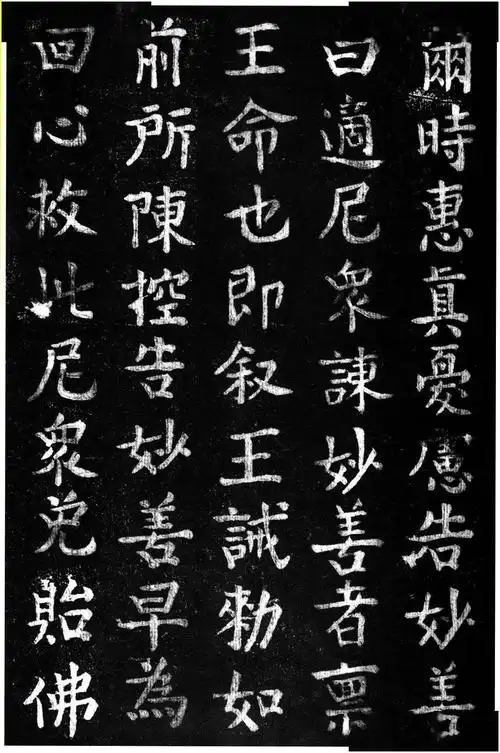 爾時惠真憂慮告妙善
曰適尼衆諫妙善者禀
王命也即叙王誡勑如
前所陳控告妙善早為
回心救此尼衆免貽佛